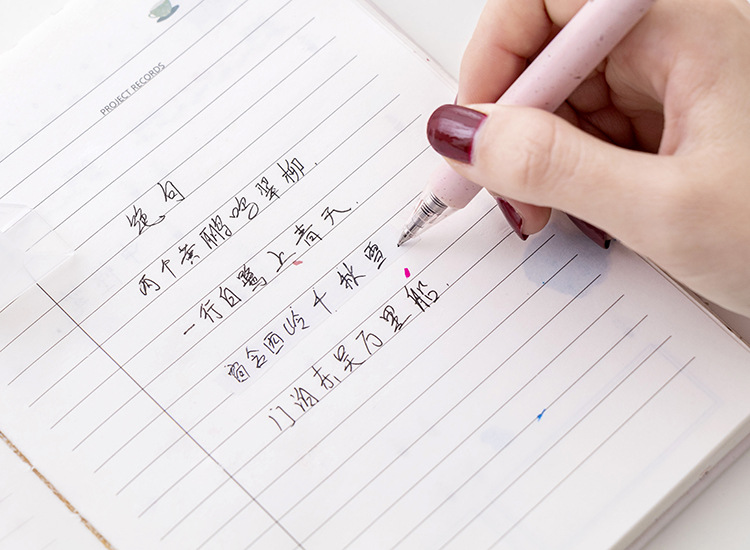 PROJECT RECORDS
绝句
两个黄鹂鸣翠柳.
一行白鹭上青天.
窗含西岭千秋雪
门泊东吴万里船.